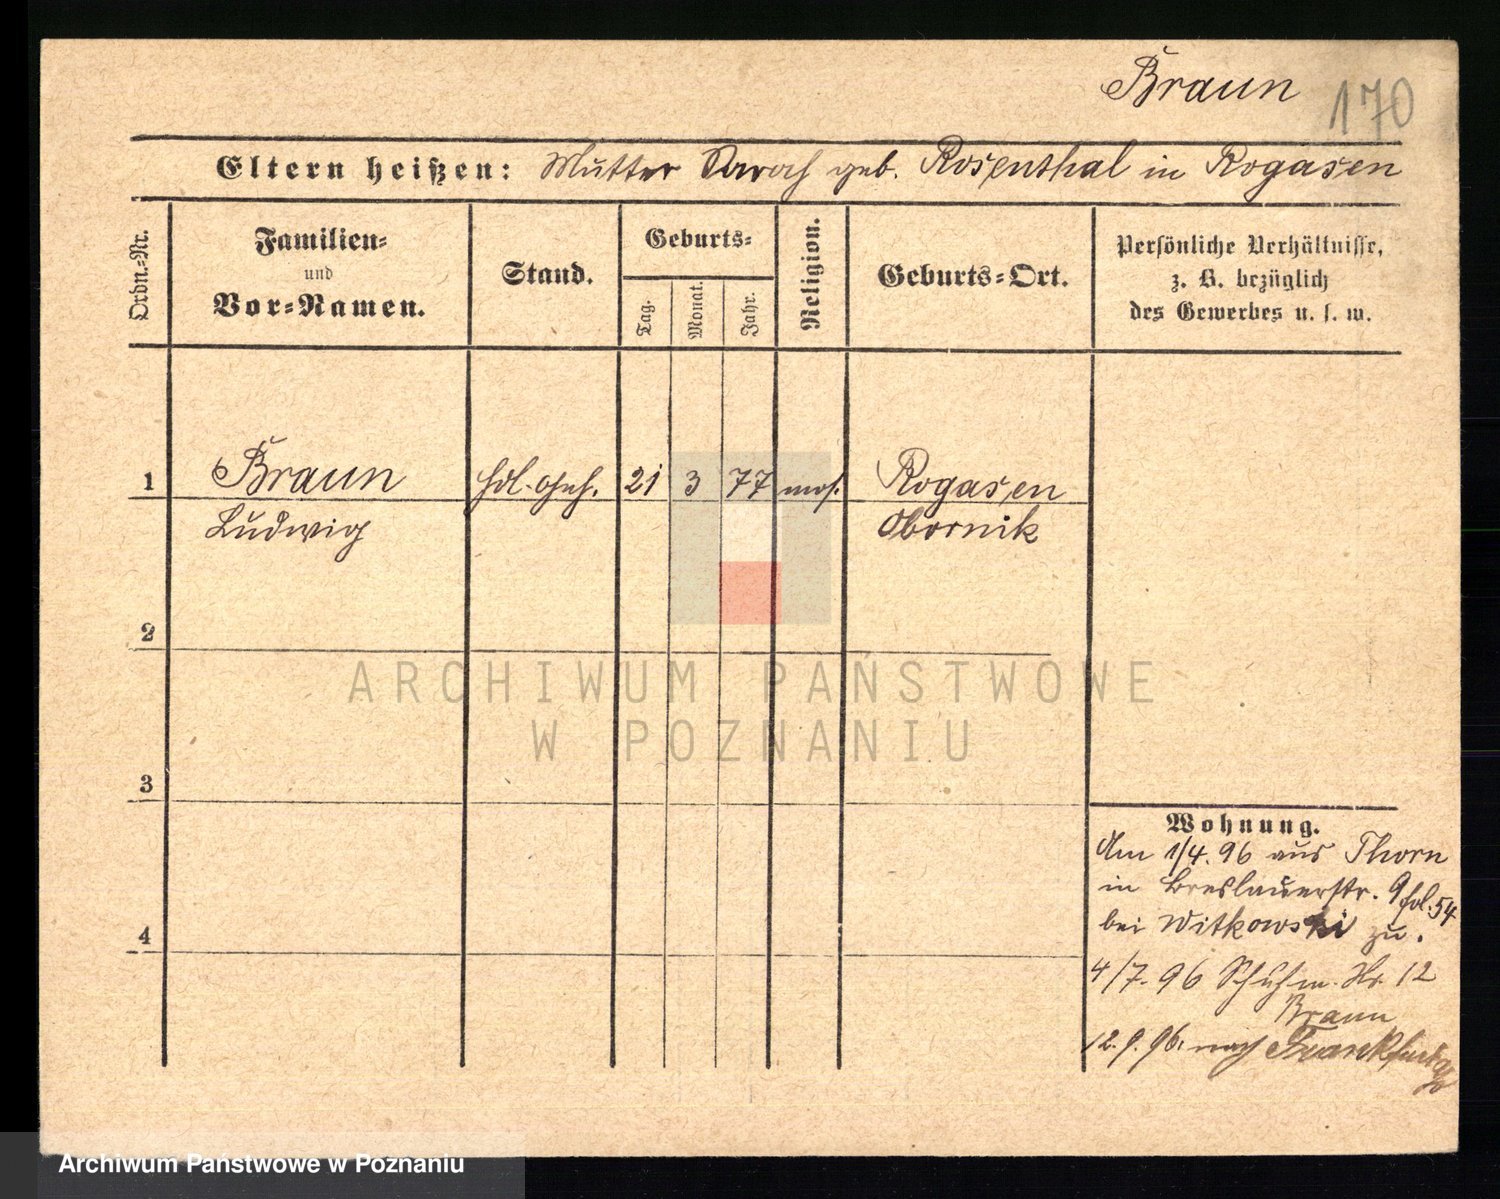 Braun 170
Eltern heißen: Mutter Sarah geb. Rosenthal in Rogasen
Ordn.-Nr.
Familien- und Vor-Namen.
Stand.
Geburts-
Tag.
Monat.
Jahr.
Religion.
Geburts-Ort.
Persönliche Verhältnisse,
z. B. bezüglich
des Gewerbes u. s. w.
1 Braun Hdl. Gehf. 21 3 77 mos. Rogasen
Ludwig Obornik
2
3
4
Wohnung.
Am 1/4. 96 aus Thorn
in Breslauerstr. 9 fol. 54
bei Witkowski zu.
4/7. 96 Schuhm. Str. 12
Braun
12. 9. 96. nach Frankfurt
ARCHIWUM PAŃSTWOWE
W POZNANIU
Archiwum Państwowe w Poznaniu